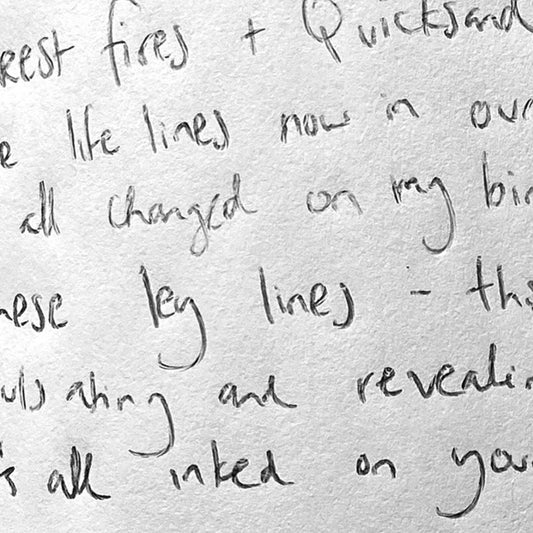 rest fires + Quicksand
e life lines now in our
all changed on my bir
hese ley lines - this
pulsating and revealin
's all inked on your